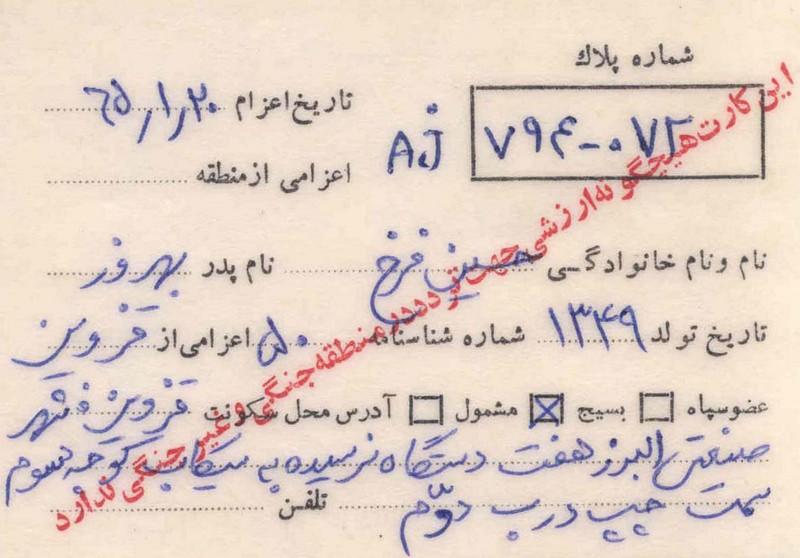 شماره پلاك
۷۹۴-۰۷۲ AJ
تاریخ اعزام ۶۵/۱/۲۰
اعزامی از منطقه
نام و نام خانوادگی حسین فرخ نام پدر بهروز
تاریخ تولد ۱۳۴۹ شماره شناسنامه ۵۰ اعزامی از قزوین
عضو سپاه بسیج مشمول آدرس محل سکونت قزوین شهر
صنعتی البرز هفت دستگاه نرسیده به سیکاپ کوچه سوم
سمت چپ درب دوّم تلفن
این کارت هیچگونه ارزشی جهت تردد در منطقه جنگی و غیر جنگی ندارد